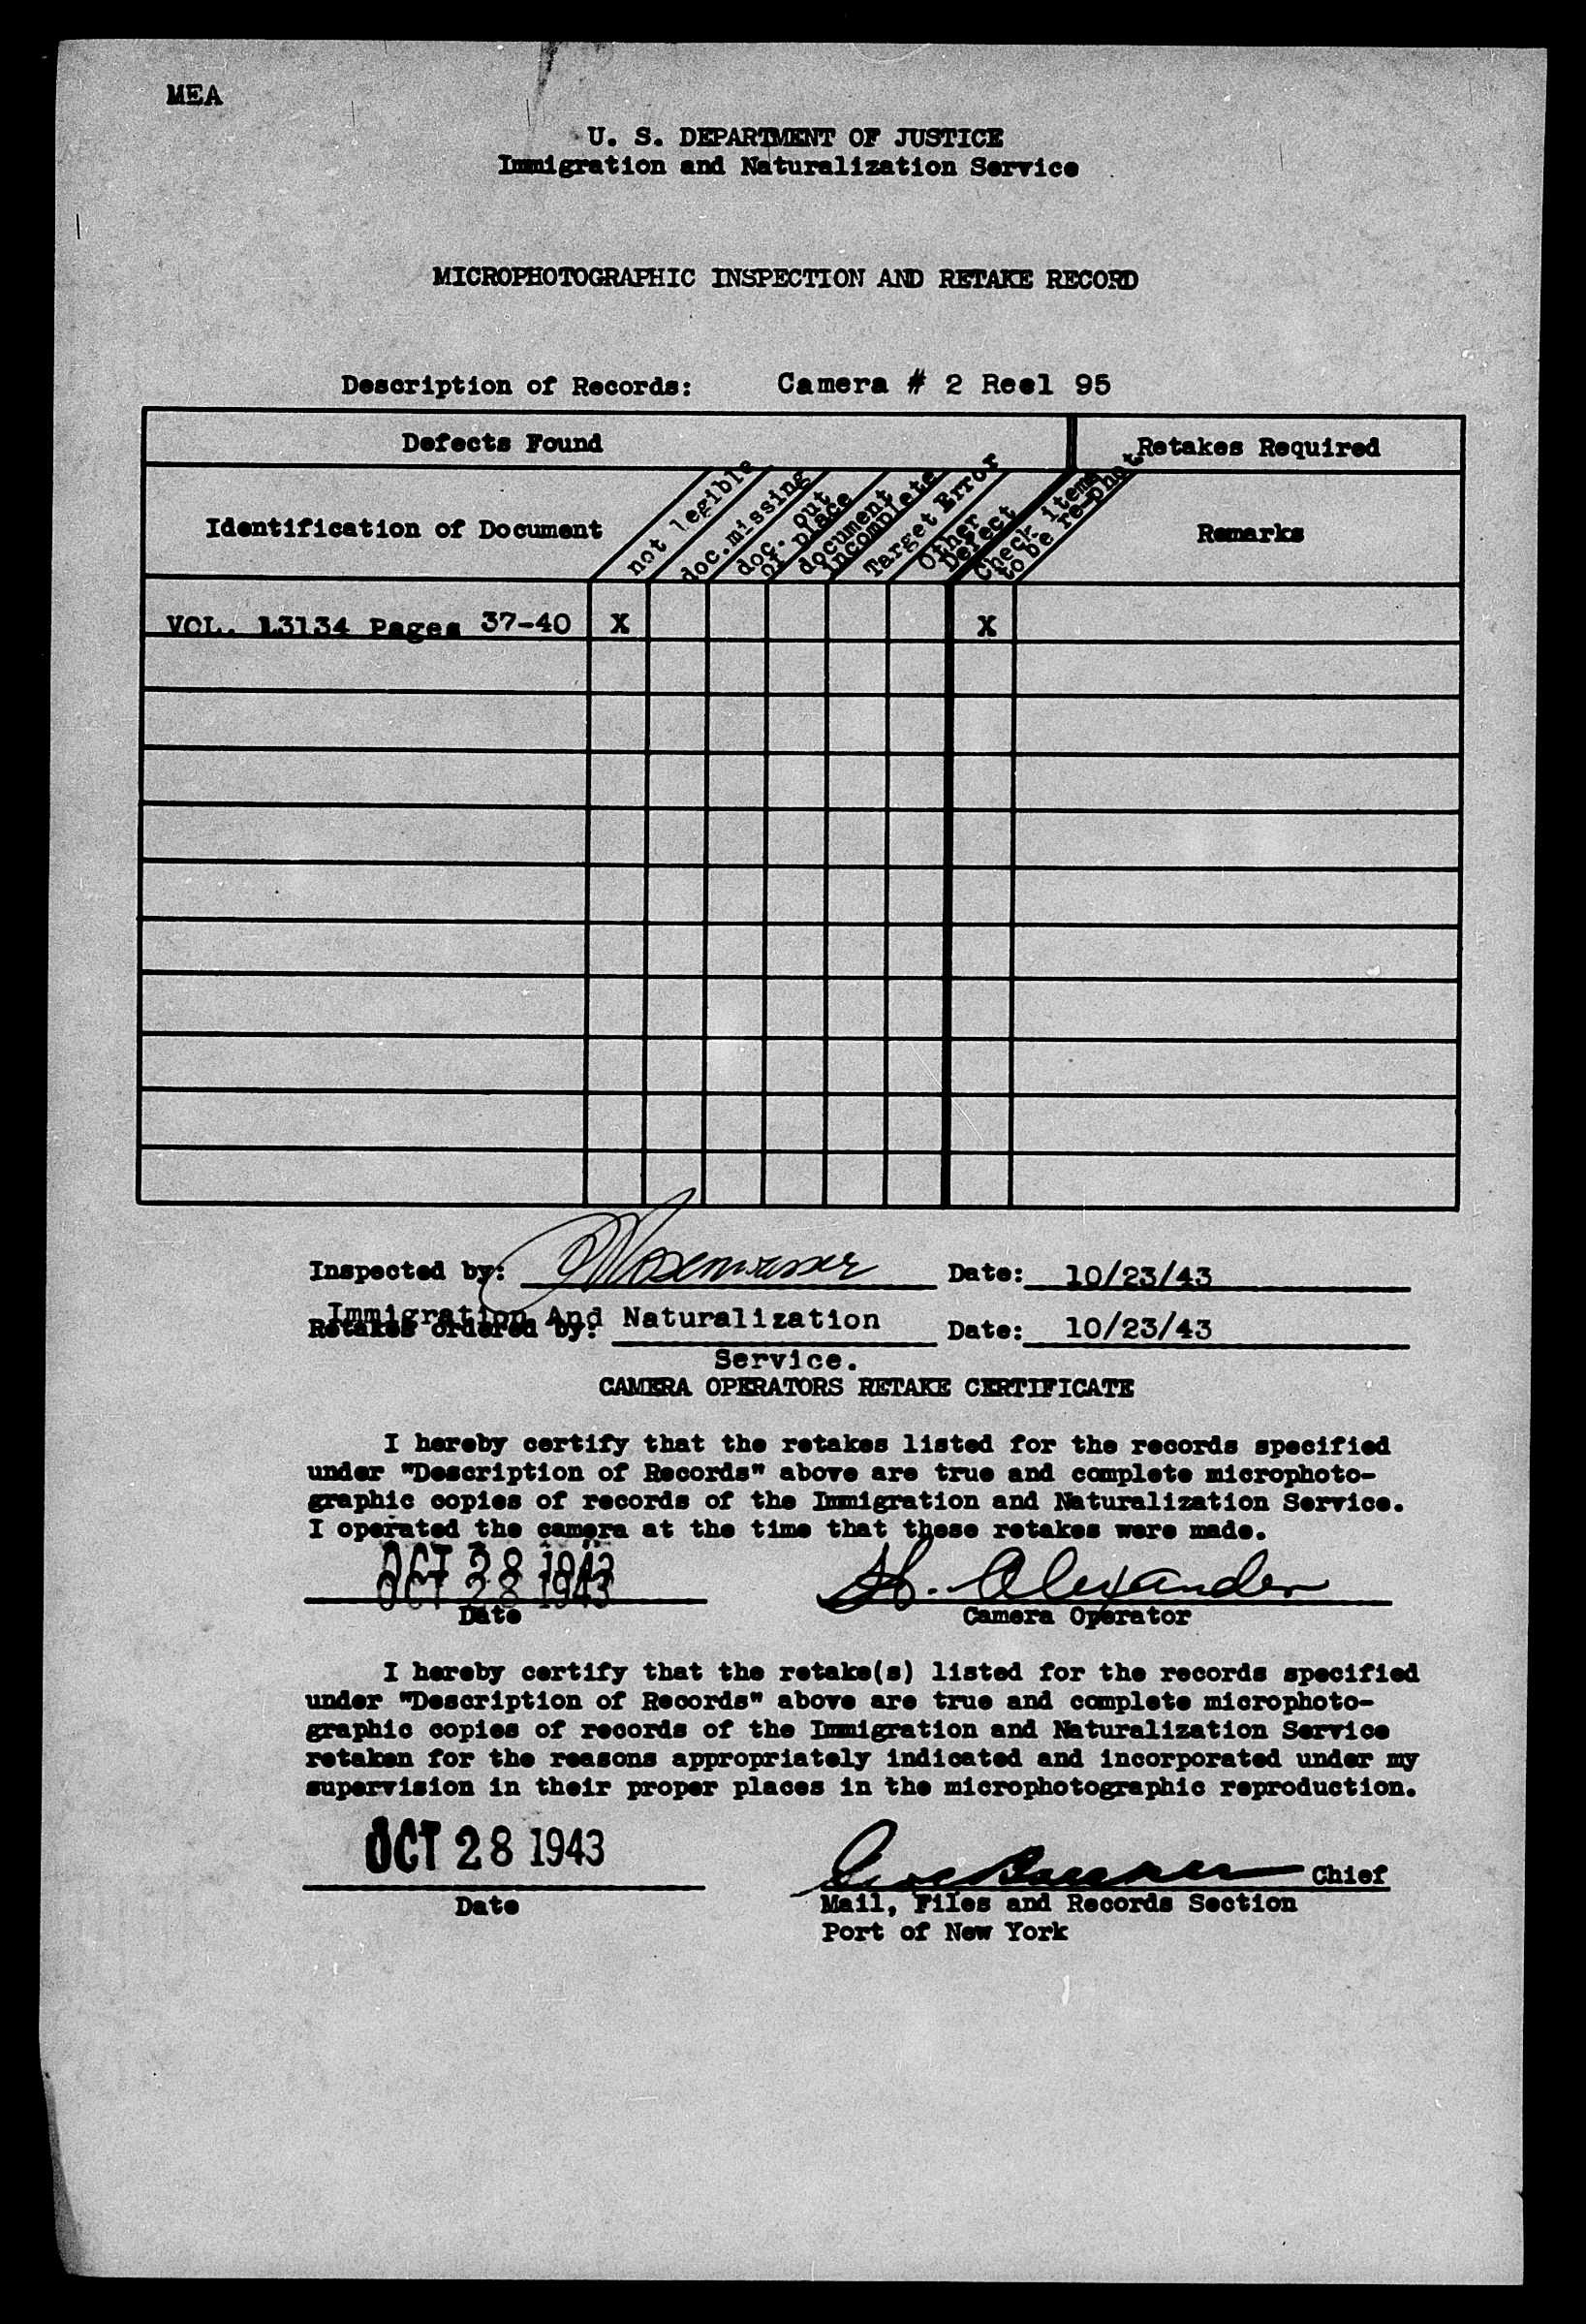 MEA
U. S. DEPARTMENT OF JUSTICE
Immigration and Naturalization Service
MICROPHOTOGRAPHIC INSPECTION AND RETAKE RECORD
Description of Records: Camera # 2 Reel 95
Defects Found
Retakes Required
Identification of Document
not legible
doc.missing
doc. out
of place
document
incomplete
Target Error
Other
Defect
Check items
to be re-phot
Remarks
VOL. 13134 Pages 37-40 X X
Inspected by: Date: 10/23/43
Immigration And Naturalization
Retakes ordered by: Date: 10/23/43
Service.
CAMERA OPERATORS RETAKE CERTIFICATE
I hereby certify that the retakes listed for the records specified
under "Description of Records" above are true and complete microphoto-
graphic copies of records of the Immigration and Naturalization Service.
I operated the camera at the time that these retakes were made.
OCT 28 1943 H. Alexander
Date Camera Operator
I hereby certify that the retake(s) listed for the records specified
under "Description of Records" above are true and complete microphoto-
graphic copies of records of the Immigration and Naturalization Service
retaken for the reasons appropriately indicated and incorporated under my
supervision in their proper places in the microphotographic reproduction.
OCT 28 1943 Chief
Date Mail, Files and Records Section
Port of New York